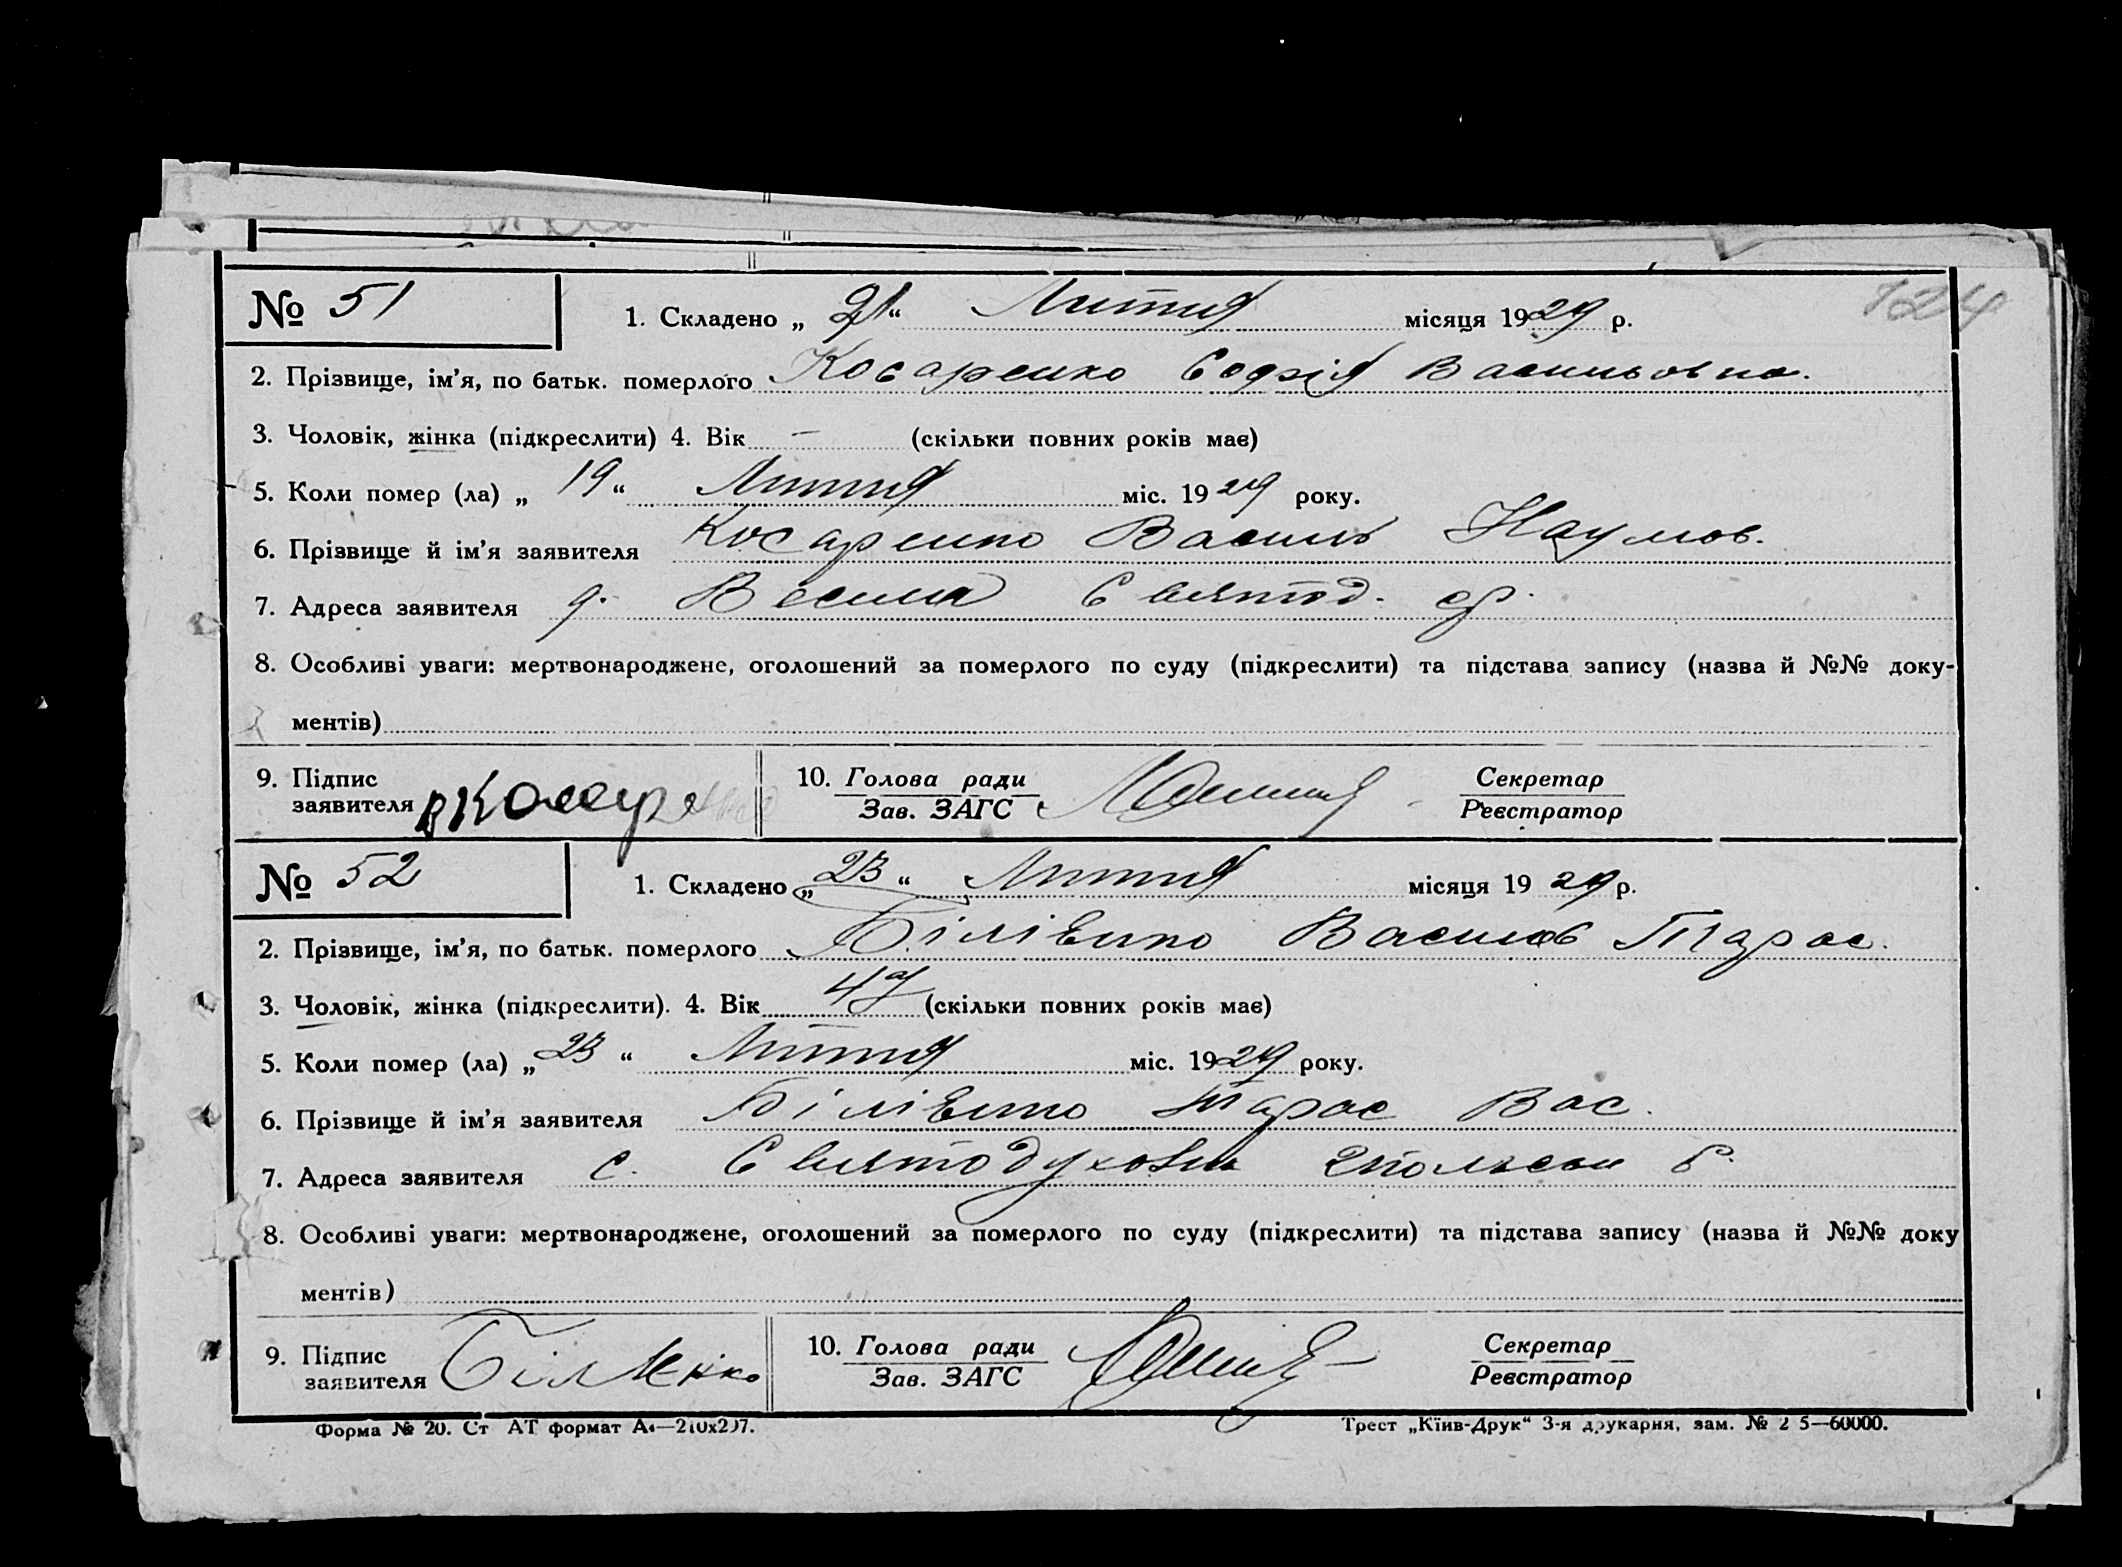 124
№ 51 1. Складено „ 21 “ Лютня місяця 1929 р.
2. Прізвище, ім’я, по батьк. померлого Косаренко Софія Васильовна.
3. Чоловік, жінка (підкреслити) 4. Вік — (скільки повних років має)
5. Коли помер (ла) „ 19 “ Лютня міс. 1929 року.
6. Прізвище й ім’я заявителя Косаренко Василь Наумов.
7. Адреса заявителя Святод. ср.
8. Особливі уваги: мертвонароджене, оголошений за померлого по суду (підкреслити) та підстава запису (назва й №№ доку-
ментів)
9. Підпис 10. Голова ради Секретар
заявителя Зав. ЗАГС Реєстратор
№ 52 1. Складено „ 23 “ Лютня місяця 1929 р.
2. Прізвище, ім’я, по батьк. померлого Білівенко Василь Тарас.
3. Чоловік, жінка (підкреслити). 4. Вік (скільки повних років має)
5. Коли помер (ла) „ 23 “ Лютня міс. 1929 року.
6. Прізвище й ім’я заявителя Тарас Вас.
7. Адреса заявителя с.
8. Особливі уваги: мертвонароджене, оголошений за померлого по суду (підкреслити) та підстава запису (назва й №№ доку
ментів)
9. Підпис 10. Голова ради Секретар
заявителя Зав. ЗАГС Реєстратор
Форма № 20. Ст АТ формат А4—210х297. Трест „Київ-Друк“ 3-я друкарня, зам. № 2 5—60000.